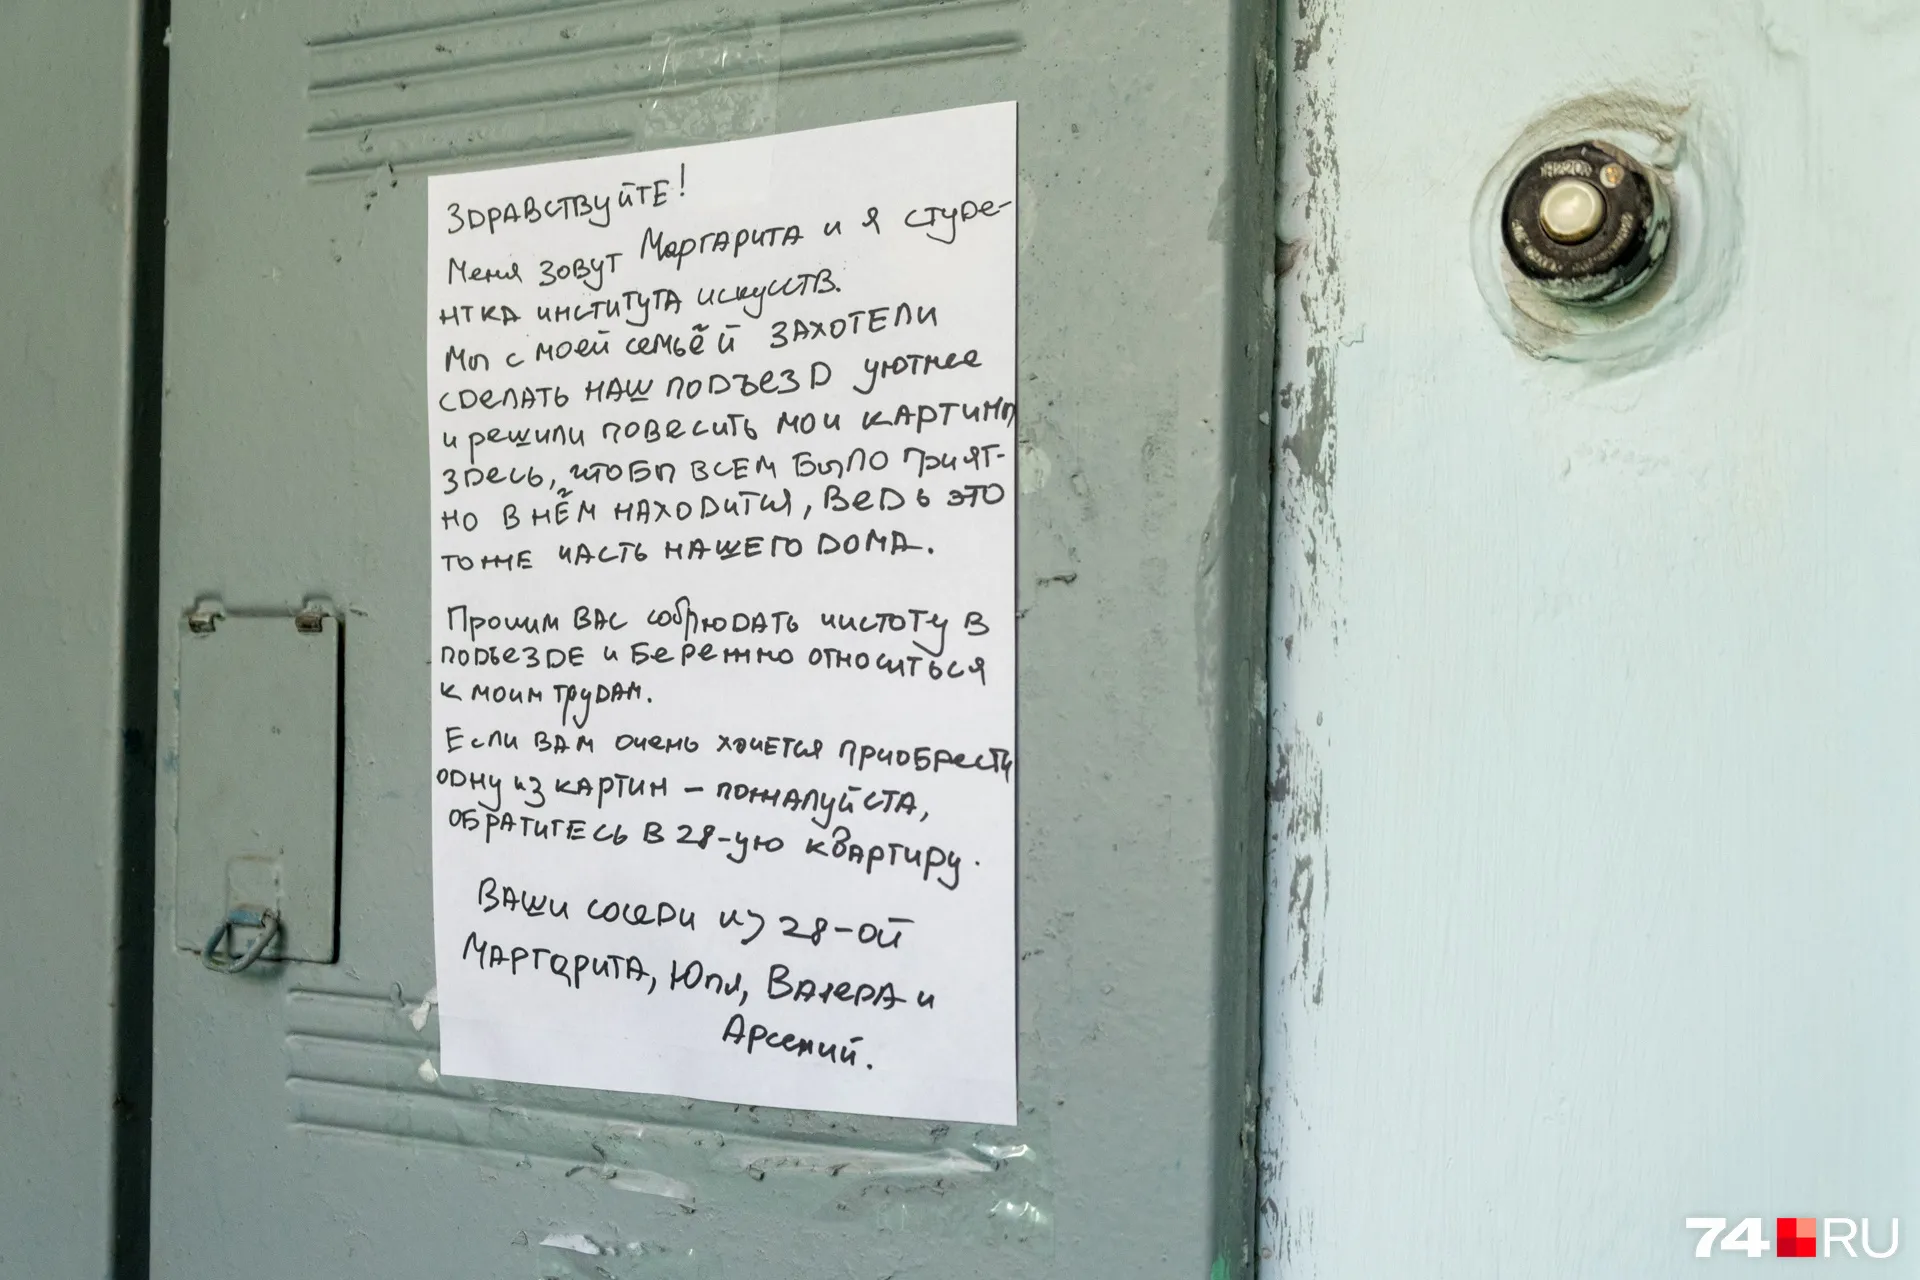 Здравствуйте!
Меня зовут Маргарита и я студе-
нтка института искусств.
Мы с моей семьёй захотели
сделать наш подъезд уютнее
и решили повесить мои картины
здесь, чтобы всем было прият-
но в нём находится, ведь это
тоже часть нашего дома.
Просим вас соблюдать чистоту в
подъезде и бережно относиться
к моим трудам.
Если вам очень хочется приобрести
одну из картин – пожалуйста,
обратитесь в 28-ую квартиру.
Ваши соседи из 28-ой
Маргарита, Юля, Валера и
Арсений.
74 RU